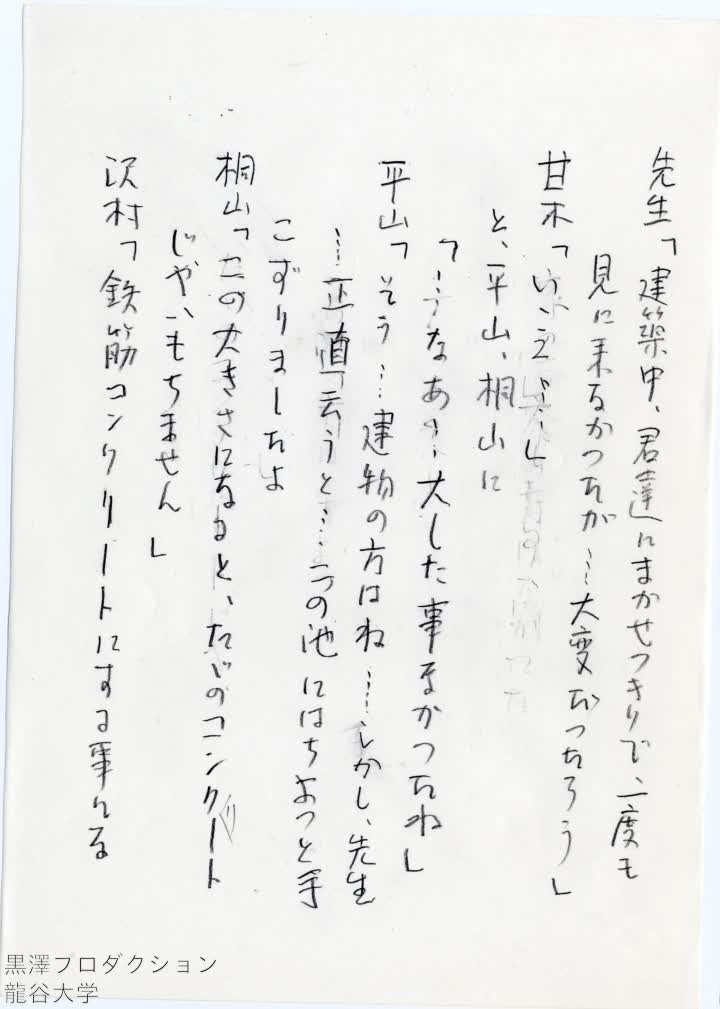 先生「建築中、君達にまかせつきりで、一度も
見に来なかつたが…大変だつたろう」
甘木「いゝえ……」
と、平山、桐山に
「……なあ……大した事なかつたね」
平山「そう…建物の方はね……しかし、先生
……正直云うと……この池にはちよつと手
こずりましたよ
桐山「この大きさになると、たゞのコンクリート
じや、もちません」
沢村「鉄筋コンクリートにする事にな
黒澤プロダクション
龍谷大学